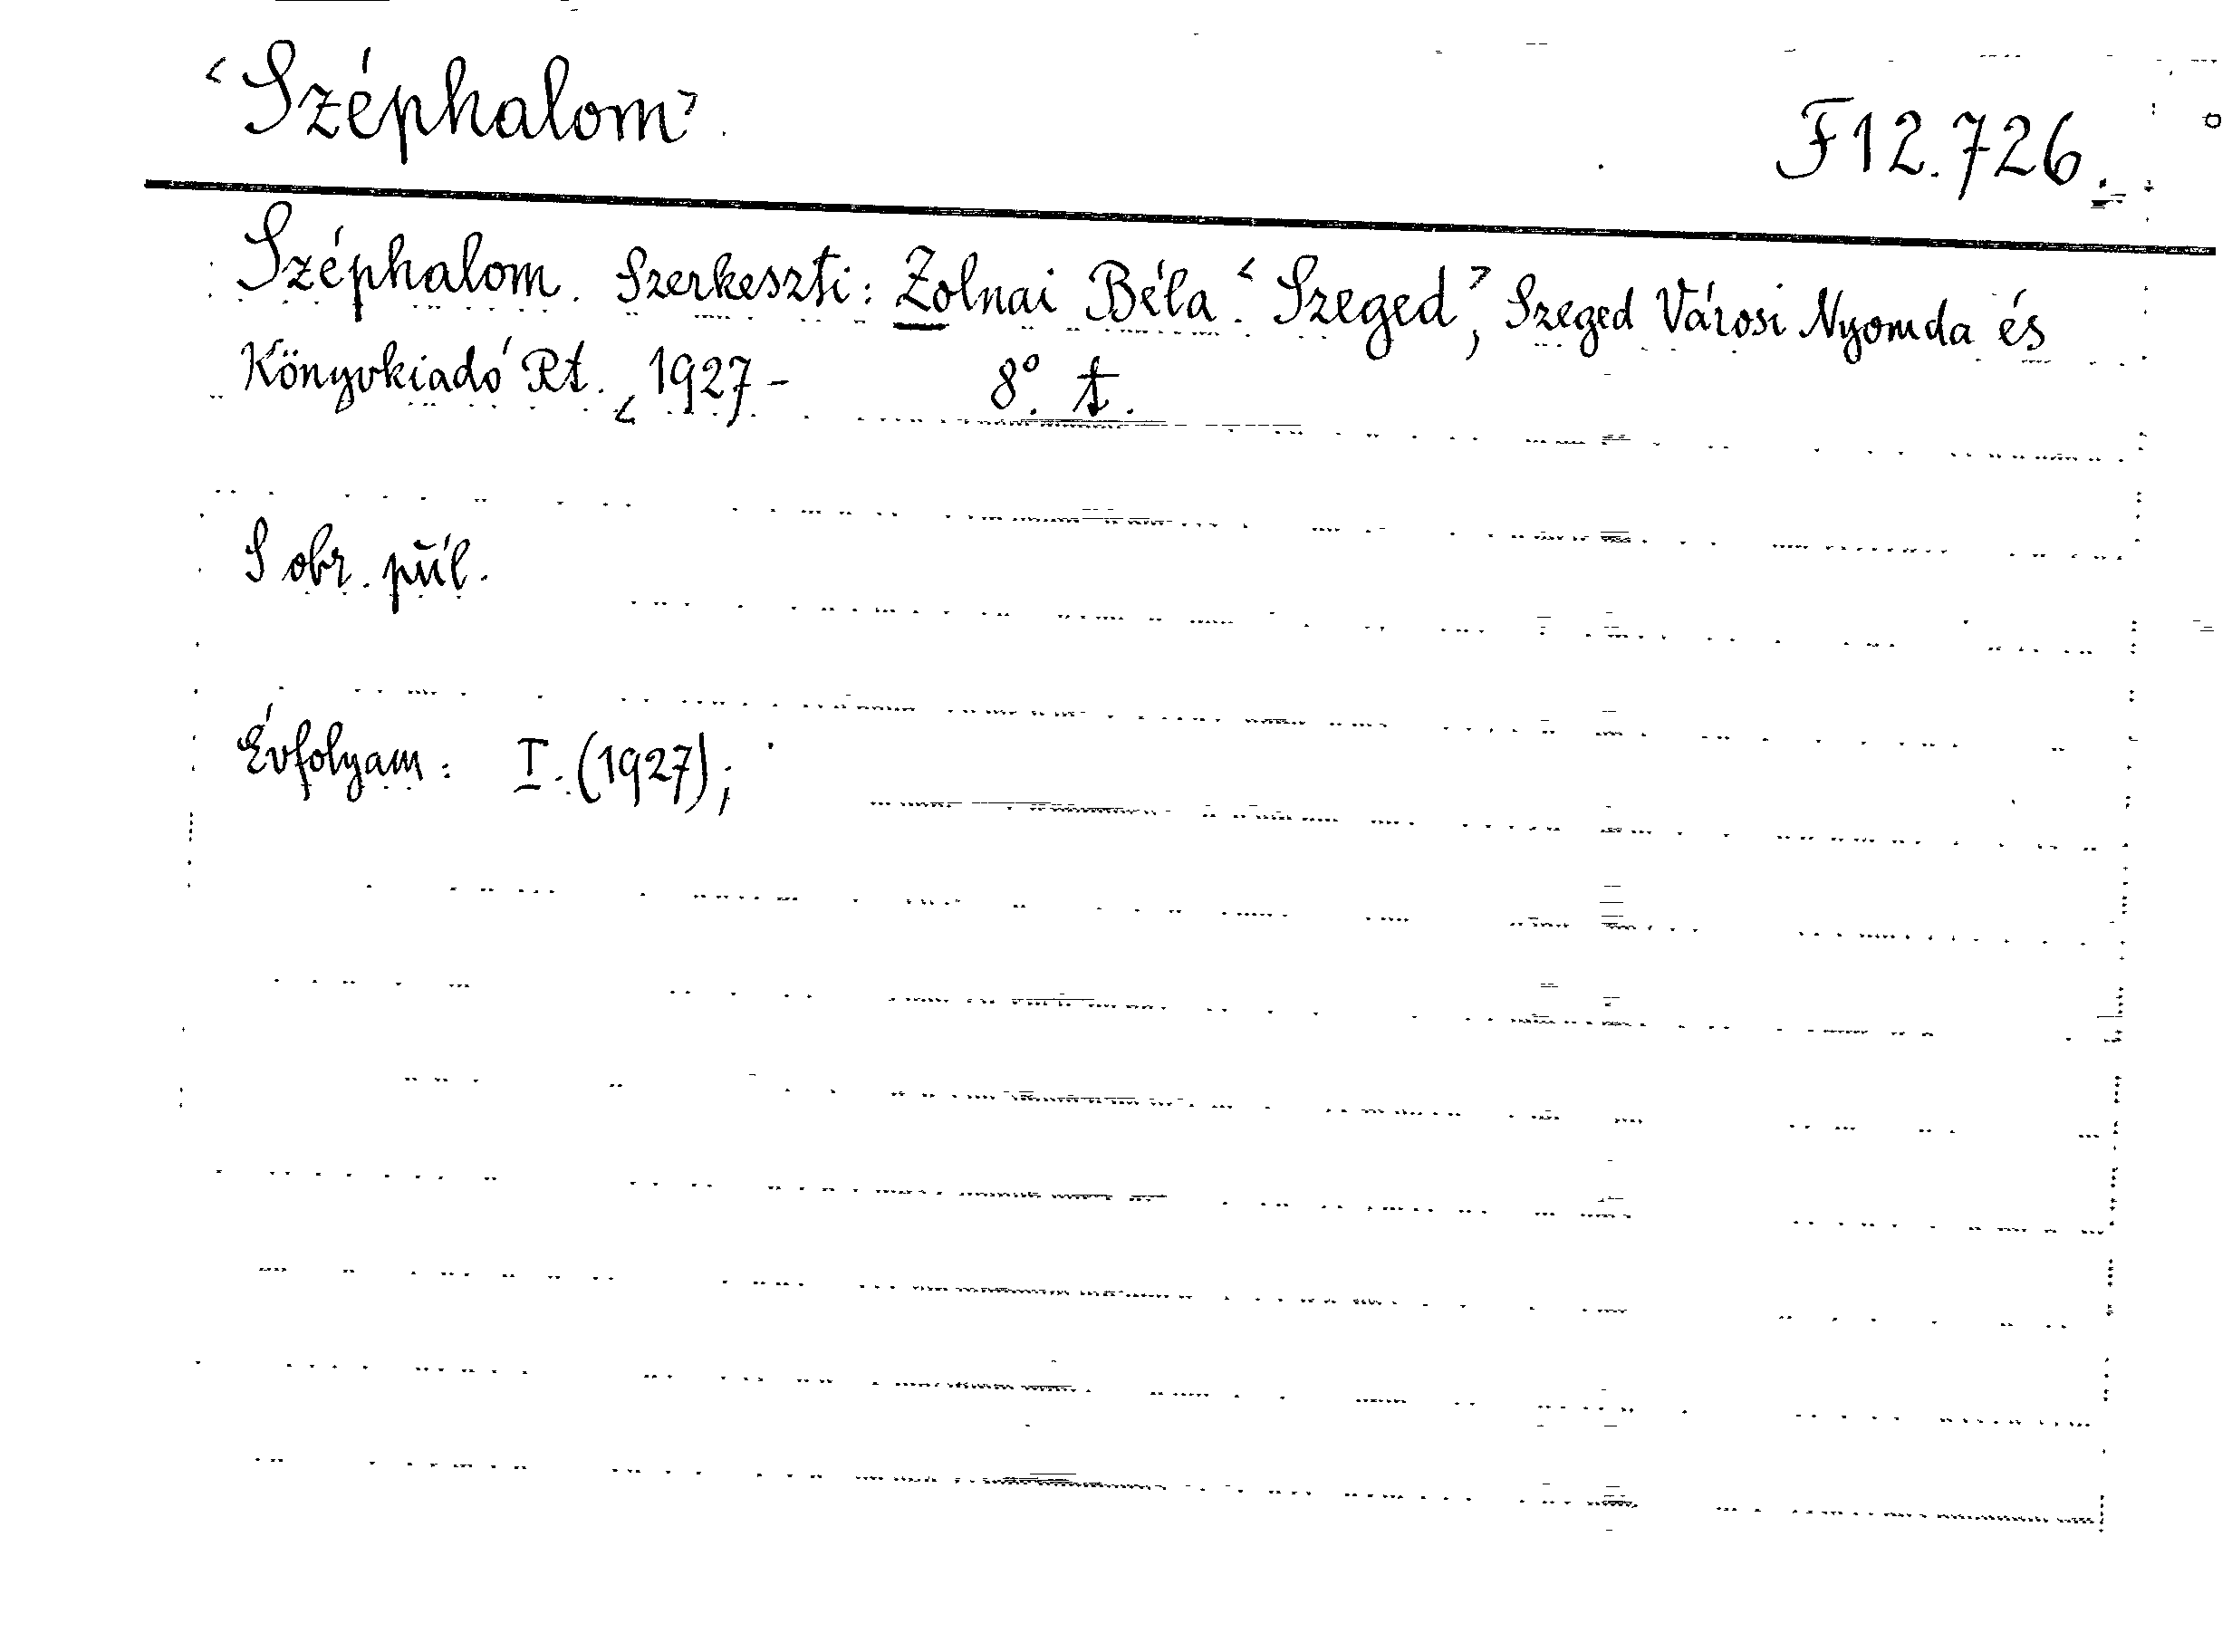 <Széphalom>
F12.726.
Széphalom. Szerkeszti: Zolnai Béla. <Szeged>, Szeged Városi Nyomda és
Könyvkiadó Rt. < 1927- 8°. t.
S obr. příl.
Évfolyam: I. (1927);